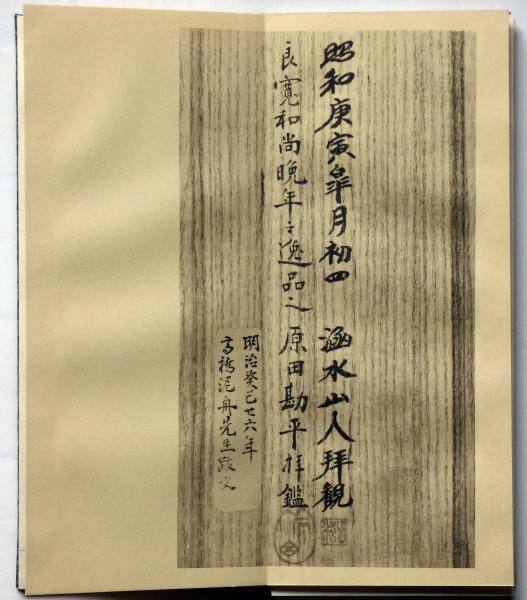 昭和庚寅皐月初四 涵水山人拝観
良寛和尚晩年之逸品也 原田勘平拝鑑
明治癸巳廿六年
高橋泥舟先生跋文